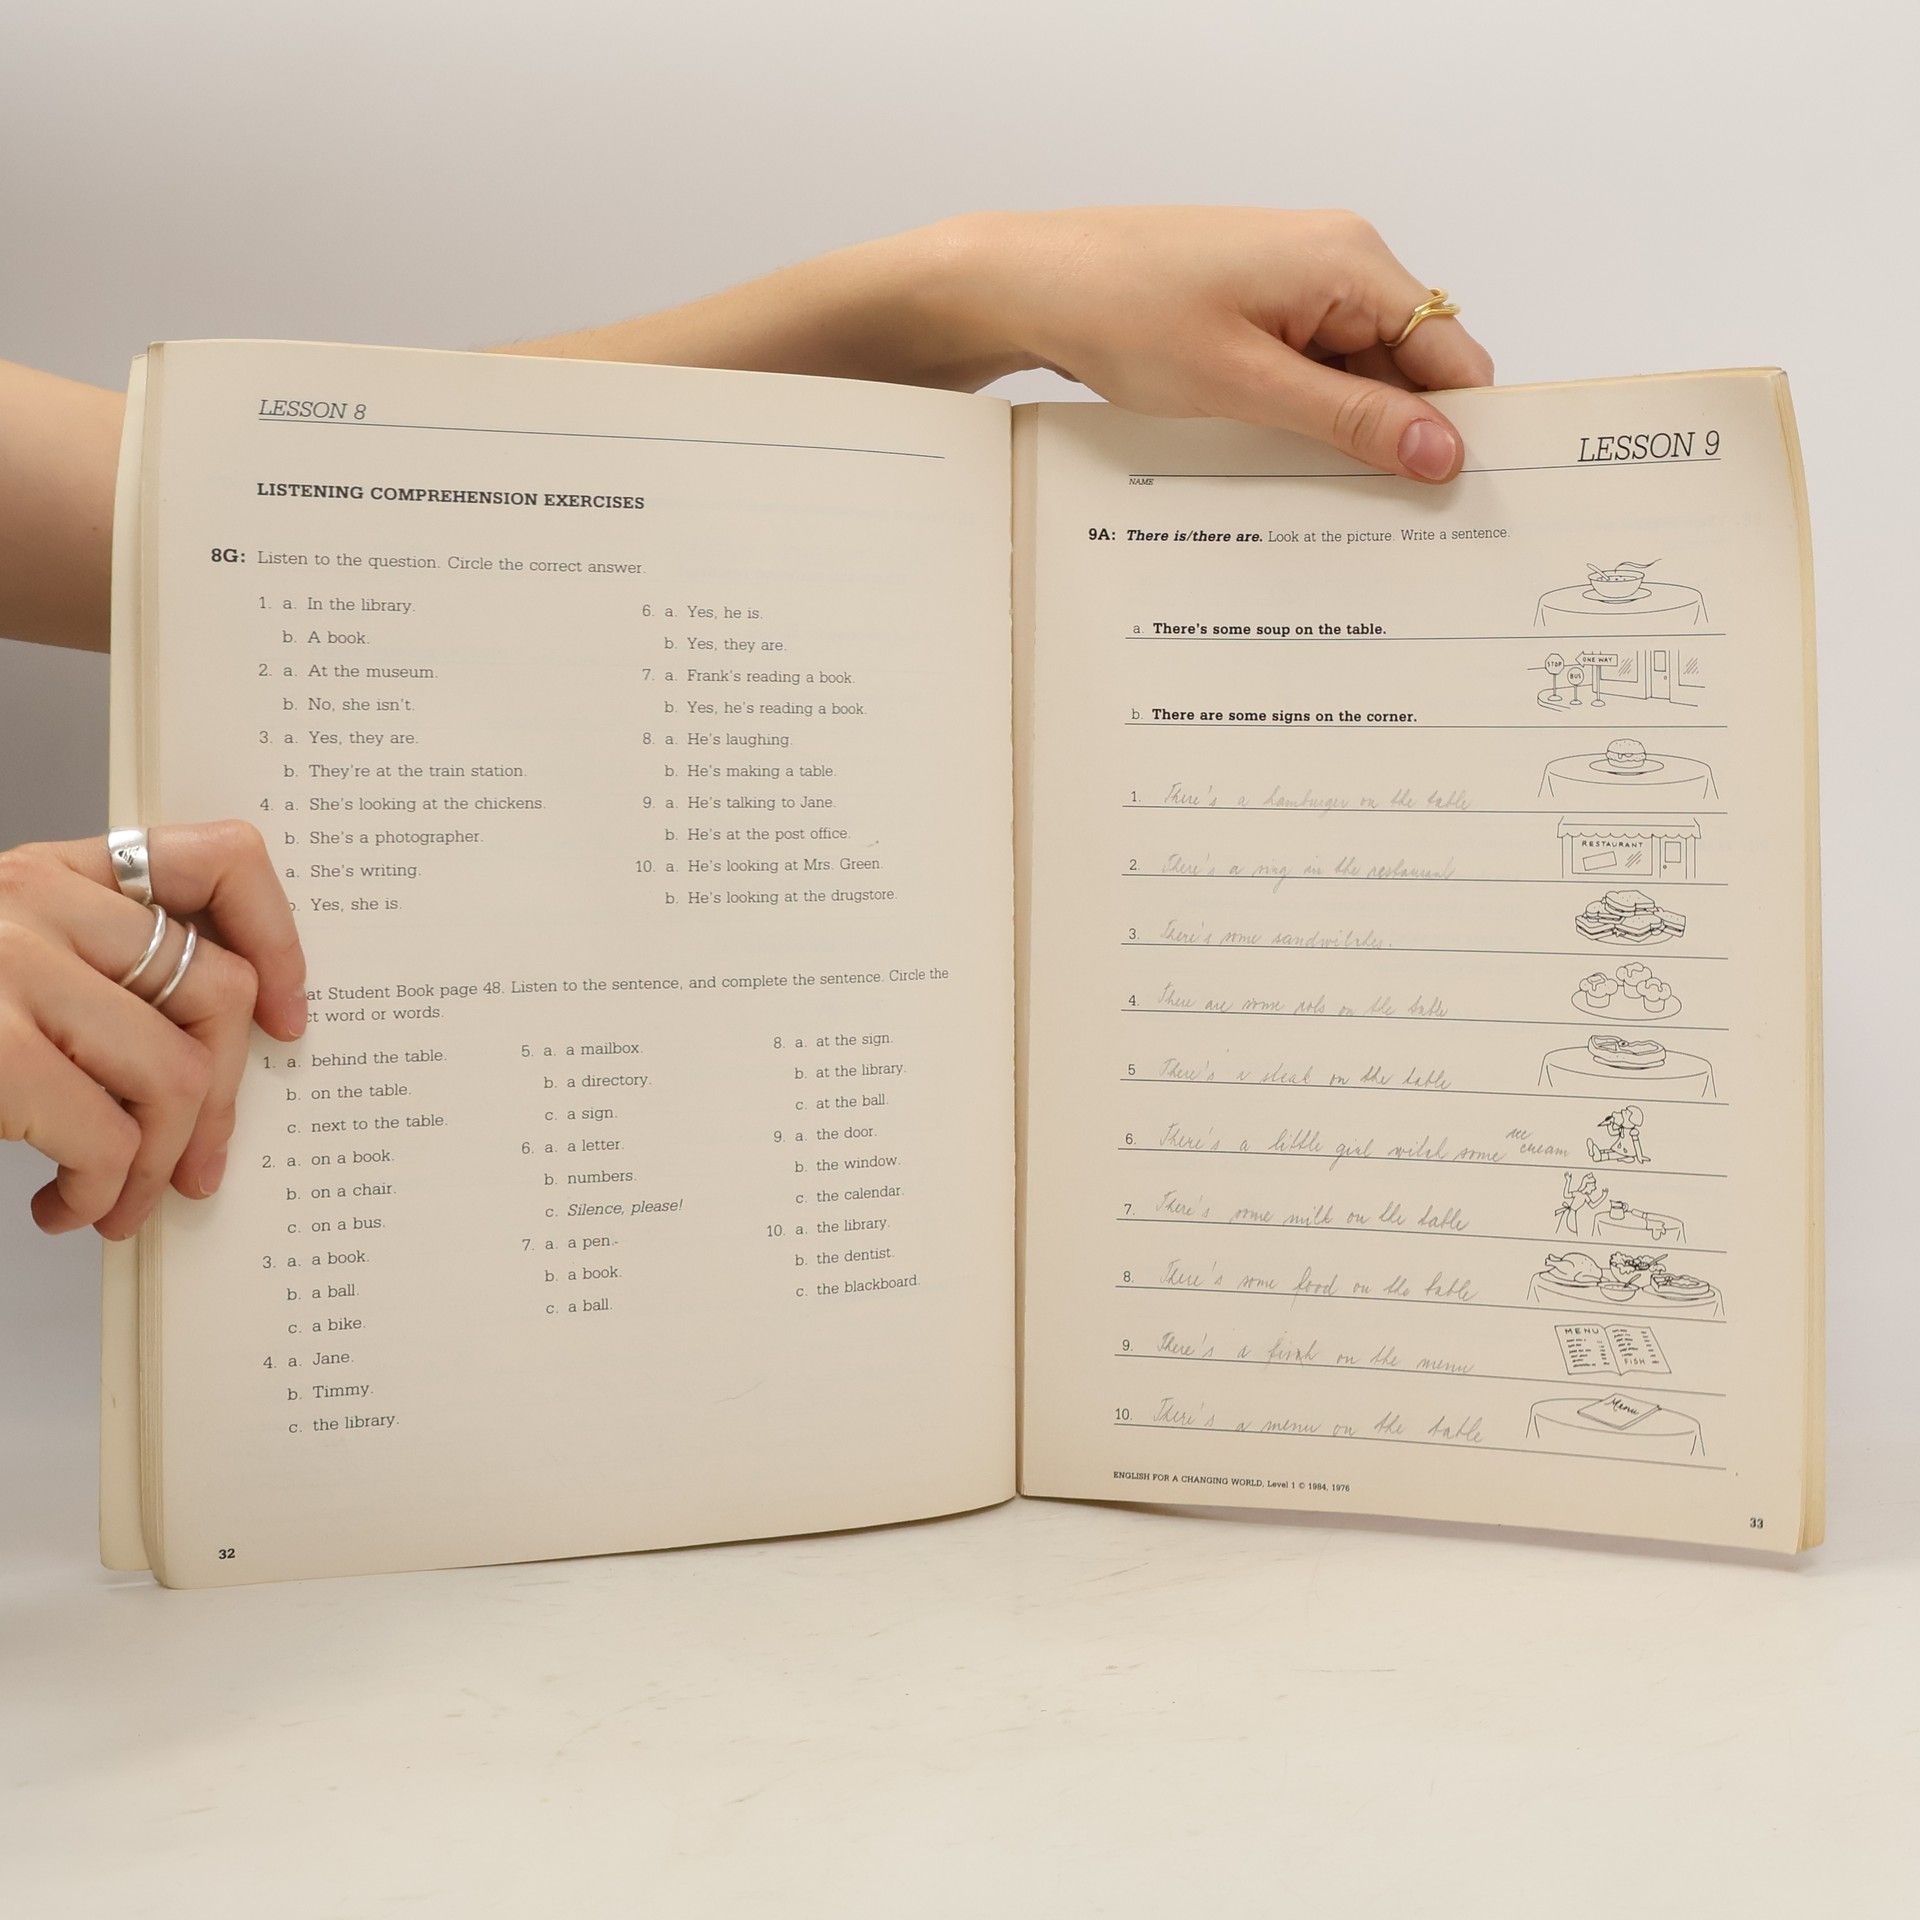 LESSON 8
LISTENING COMPREHENSION EXERCISES
8G: Listen to the question. Circle the correct answer.
1. a. In the library.
b. A book.
2. a. At the museum.
b. No, she isn't.
3. a. Yes, they are.
b. They're at the train station.
4. a. She's looking at the chickens.
b. She's a photographer.
a. She's writing.
b. Yes, she is.
6. a. Yes, he is.
b. Yes, they are.
7. a. Frank's reading a book.
b. Yes, he's reading a book.
8. a. He's laughing.
b. He's making a table.
9. a. He's talking to Jane.
b. He's at the post office.
10. a. He's looking at Mrs. Green.
b. He's looking at the drugstore.
at Student Book page 48. Listen to the sentence, and complete the sentence. Circle the
ct word or words.
1. a. behind the table.
b. on the table.
c. next to the table.
2. a. on a book.
b. on a chair.
c. on a bus.
3. a. a book.
b. a ball.
c. a bike.
4. a. Jane.
b. Timmy.
c. the library.
5. a. a mailbox.
b. a directory.
c. a sign.
6. a. a letter.
b. numbers.
c. Silence, please!
7. a. a pen.
b. a book.
c. a ball.
8. a. at the sign.
b. at the library.
c. at the ball.
9. a. the door.
b. the window.
c. the calendar.
10. a. the library.
b. the dentist.
c. the blackboard.
32
LESSON 9
NAME
9A: There is/there are. Look at the picture. Write a sentence.
a. There's some soup on the table.
STOP
ONE WAY
BUS
b. There are some signs on the corner.
1. There's a hamburger on the table
RESTAURANT
2. There's a in the restaurant
3. There's some
4. There are some rols on the table
5 There's a steak on the table
6. There's a little girl some ice
cream
7. There's some milk on the table
8. There's some food on the table
MENU
FISH
9. There's a on the menu
Menu
10. There's a menu on the table
ENGLISH FOR A CHANGING WORLD, Level 1 © 1984, 1976
33